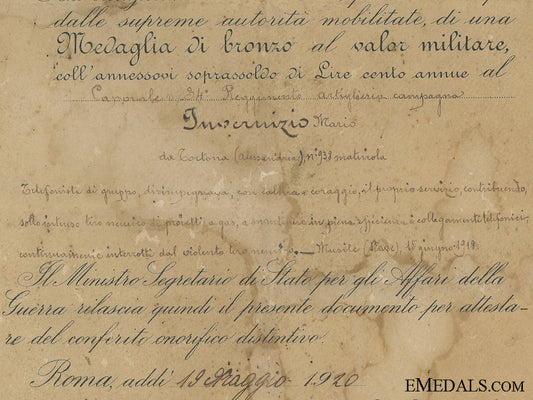 dalle supreme autorità mobilitate, di una
Medaglia di bronzo al valor militare,
coll'annessovi soprassoldo di Lire cento annue al
Caporale 34° Reggimento artiglieria campagna
Invernizio Mario
da Tortona (Alessandria), n° 938 matricola
Telefonista di gruppo, disimpegnava, con calma e coraggio, il proprio servizio, contribuendo,
sotto furioso tiro nemico di proietti a gas, a mantenere in piena efficienza i collegamenti telefonici,
continuamente interrotti dal violento tiro nemico. – Musile (Piave), 15 giugno 1918.
Il Ministro Segretario di Stato per gli Affari della
Guerra rilascia quindi il presente documento per attesta-
re del conferito onorifico distintivo.
Roma, addì 19 Maggio 1920
EMEDALS.COM